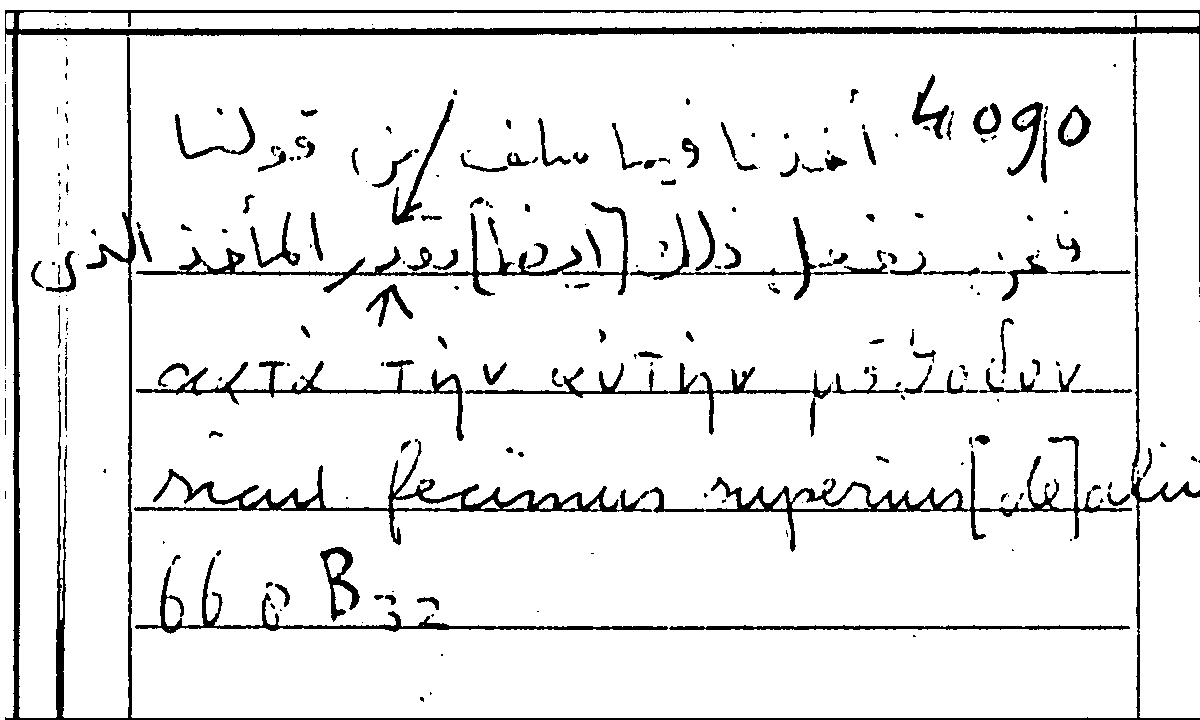 4090 أخذنا فيما سلف من قولنا
فنحن نفعل ذلك [ايضا] نقو المأخذ الذى
κατὰ τὴν αὐτὴν μέθοδον
sicut fecimus superius [de] alii
660 B 32